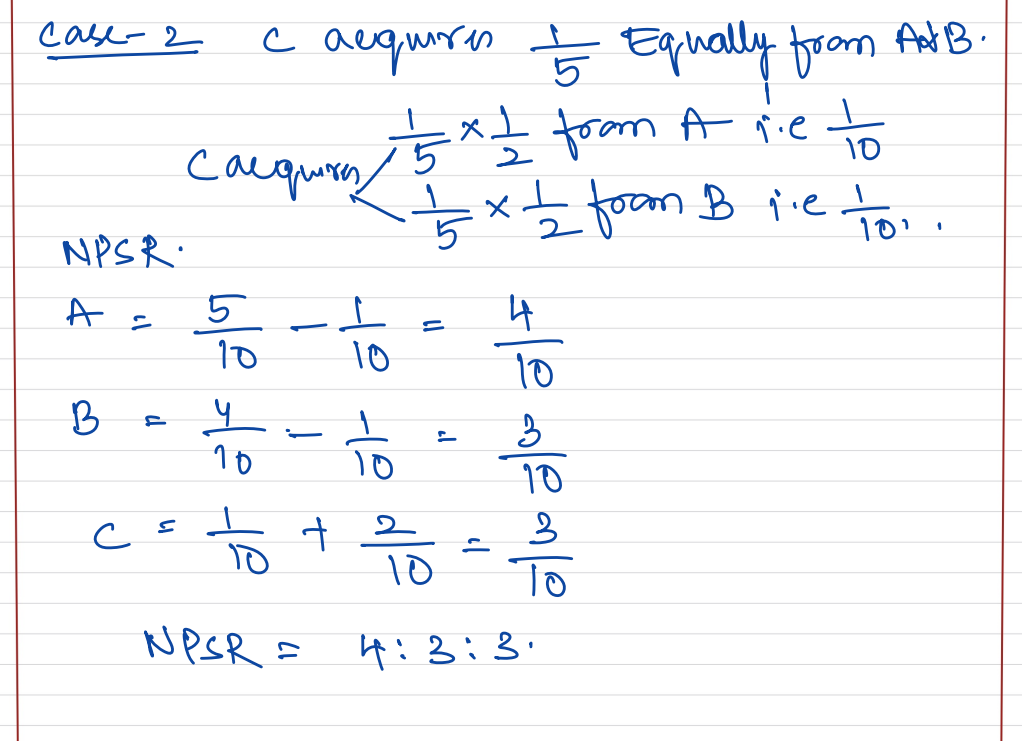 Case-2 C acquires 1/5 Equally from A & B.
C acquires 1/5 × 1/2 from A i.e 1/10
1/5 × 1/2 from B i.e 1/10.
NPSR.
A = 5/10 - 1/10 = 4/10
B = 4/10 - 1/10 = 3/10
C = 1/10 + 2/10 = 3/10
NPSR = 4:3:3.